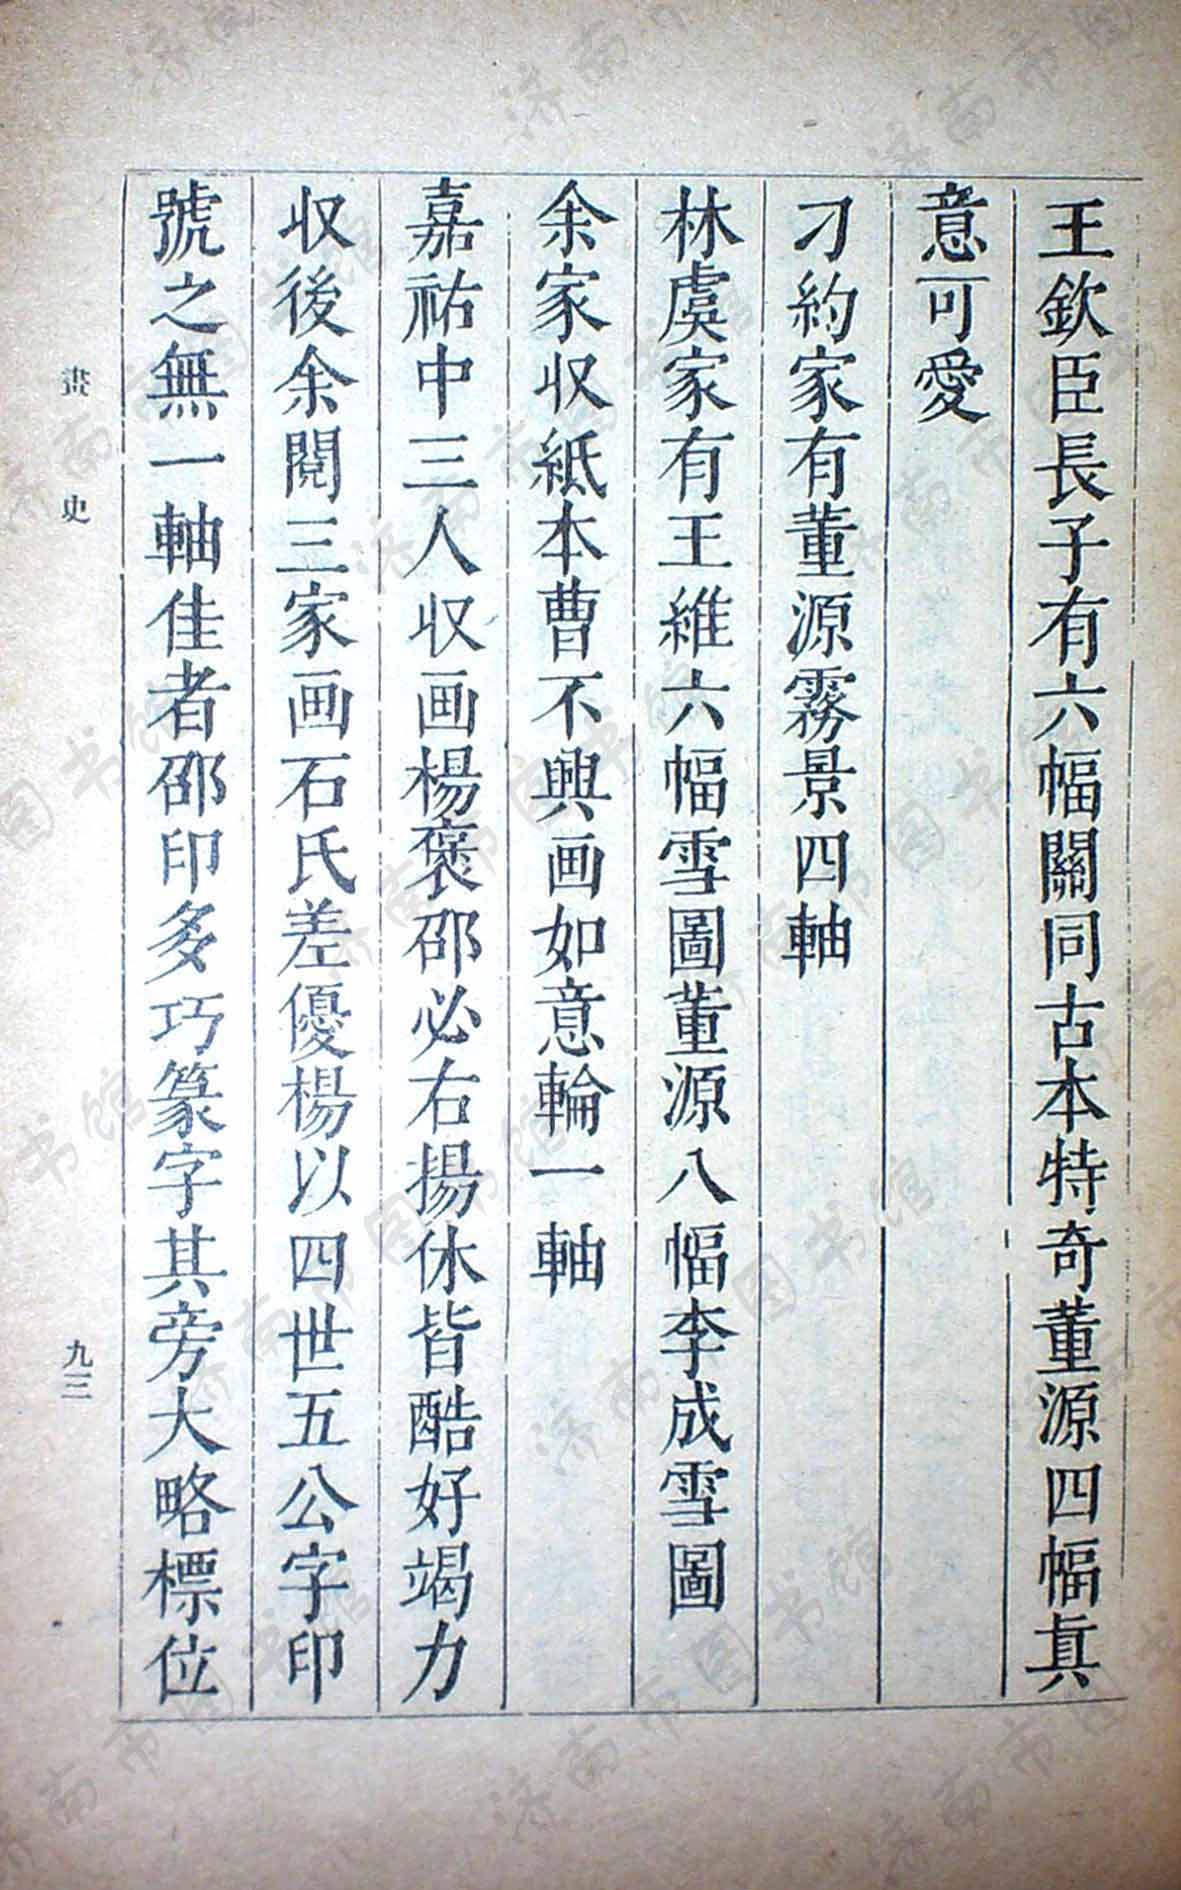 王欽臣長子有六幅關同古本特奇董源四幅真
意可愛
刁約家有董源霧景四軸
林虞家有王維六幅雪圖董源八幅李成雪圖
余家収紙本曹不興画如意輪一軸
嘉祐中三人収画楊褒邵必右揚休皆酷好竭力
収後余閱三家画石氏差優楊以四世五公字印
號之無一軸佳者邵印多巧篆字其旁大略標位
畫史
九三